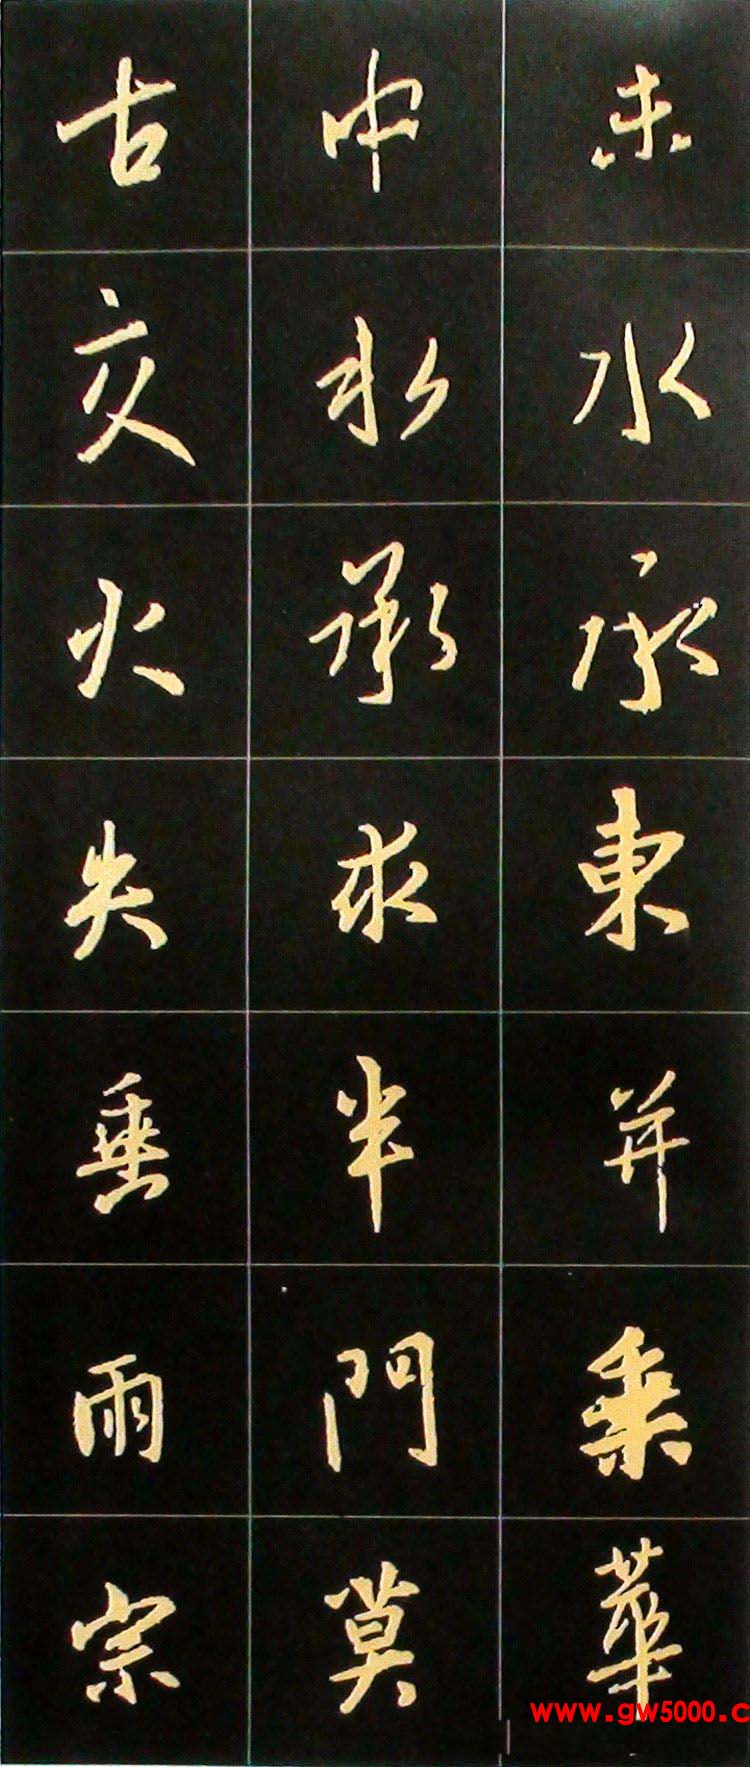 未水承東并乘華
中水承求半門莫
古交火失垂雨宗
www.gw5000.c